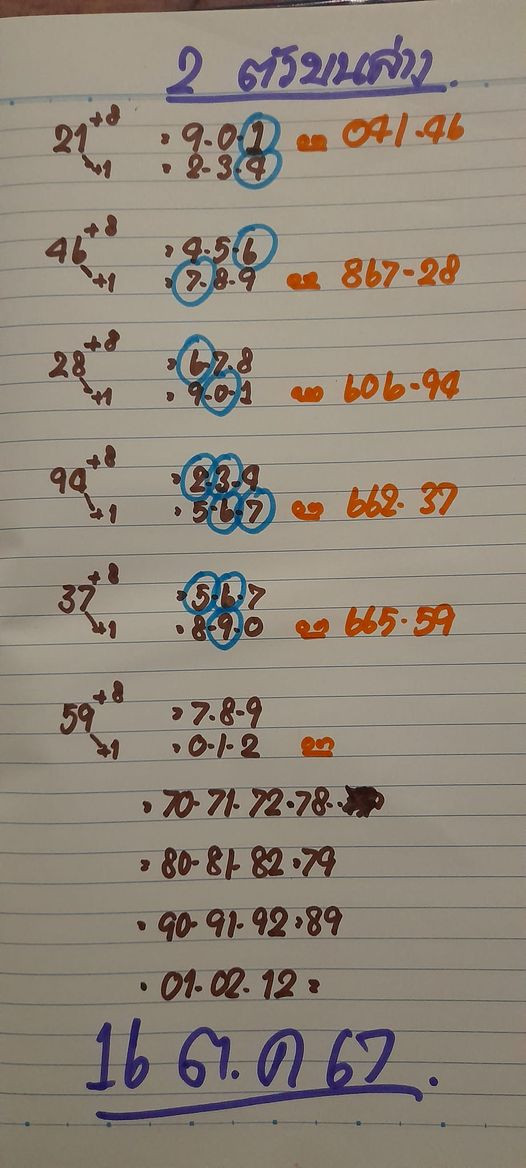 2 ตัวบนล่าง.
21 +8 > 9-0-1 ๒ 041-46
+1 > 2-3-4
46 +8 > 4-5-6
+1 > 7-8-9 ๒ 867-28
28 +8 > 6-7-8
+1 > 9-0-1 606-94
94 +8 > 2-3-4
+1 > 5-6-7 662-37
37 +8 > 5-6-7
+1 > 8-9-0 665-59
59 +8 > 7-8-9
+1 > 0-1-2
> 70-71-72-78-
> 80-81-82-79
> 90-91-92-89
> 01-02-12 =
16 ต.ค 67.